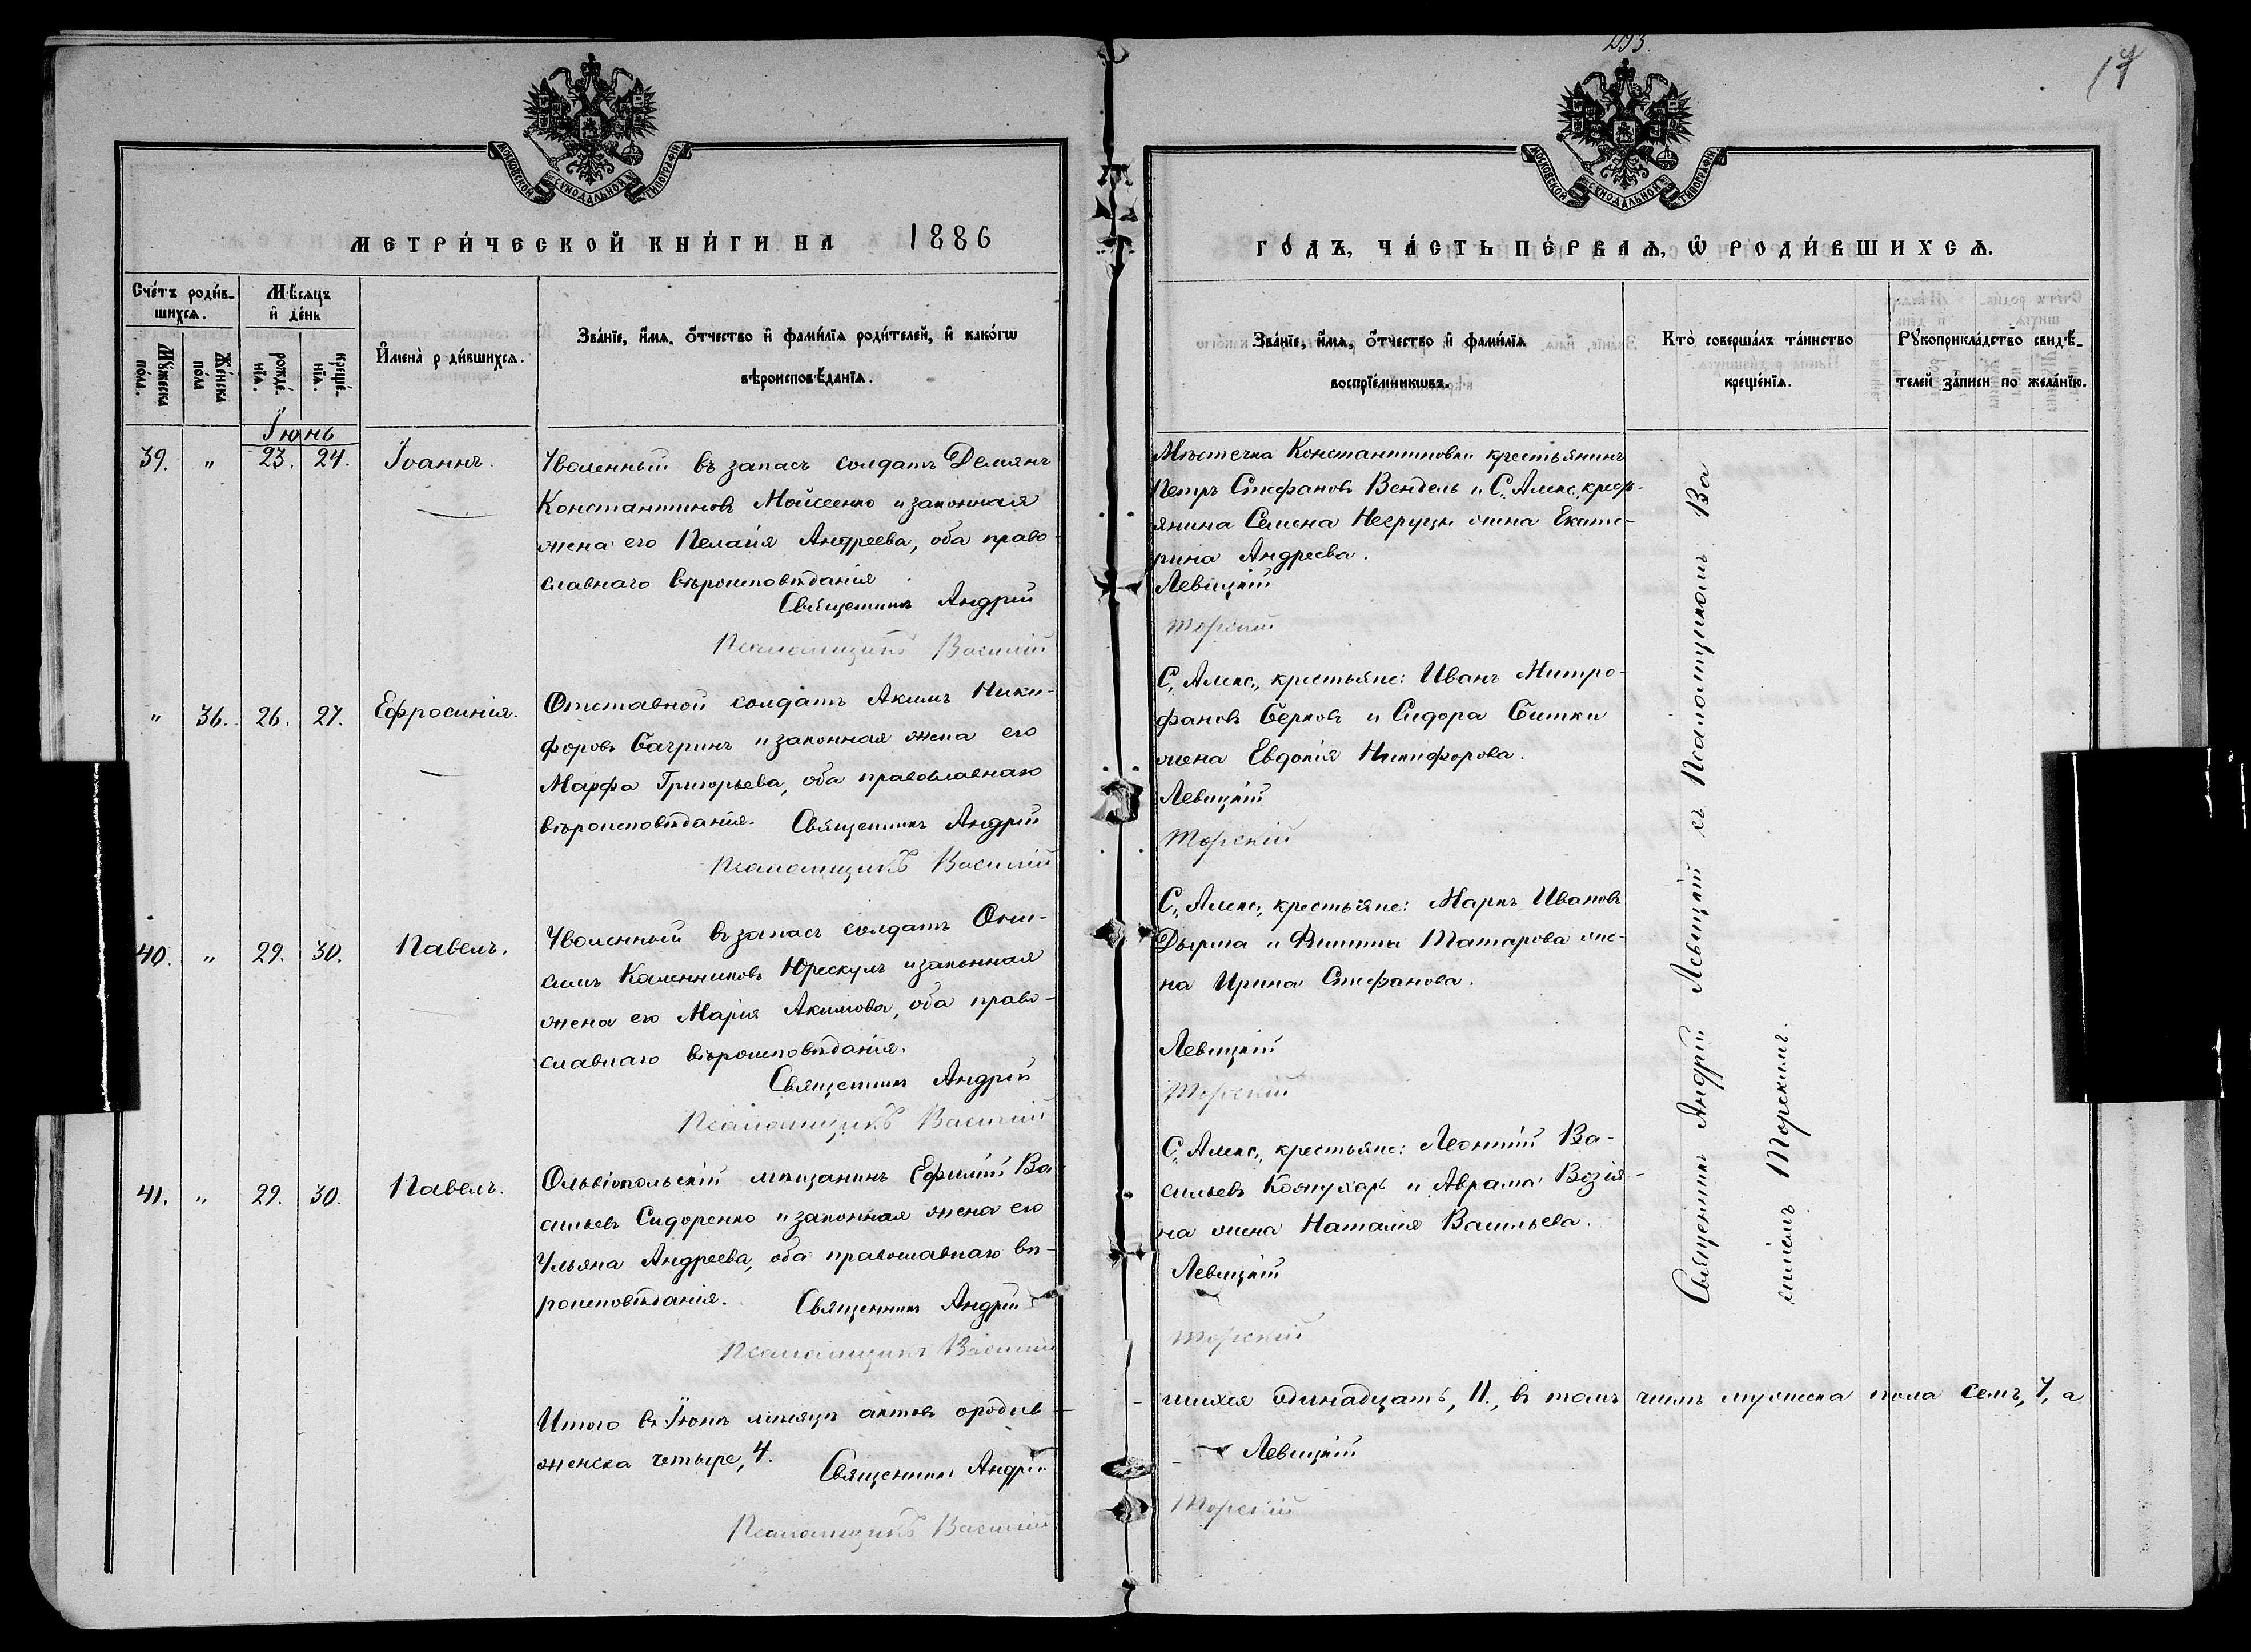 293.
17
МОСКОВСКОЙ СУНОДАЛЬНОЙ ТИПОГРАФІИ
МОСКОВСКОЙ СУНОДАЛЬНОЙ ТИПОГРАФІИ
МЕТРИ́ЧЕСКОЙ КНИ́ГИ НА 1886
ГО́ДЪ, ЧА́СТЬ ПЕ́РВАЯ, Ѡ РОДИ́ВШИХСЯ.
Сче́тъ роди́в-
шихся.
Мѣ́сяцъ
и де́нь
Мꙋжеска
пола.
Же́нска
по́ла
рожде́-
нїя.
креще́-
нїя.
Имена̀ р дившихся.
Зва́нїе, и́мя, ѻ́тчество и фами́лїя роди́телей, и како́гѡ
вѣроисповѣ́данїя.
Зва́нїе, и́мя, ѻ́тчество и фами́лїя
воспрїе́мникѡвъ.
Кто̀ соверша́лъ та́инство
креще́нїя.
Рꙋкоприкла́дство свидѣ́-
телей за́писи по жела́нїю.
Іюнь
39. " 23. 24. Іоаннъ.
Уволенный въ запасъ солдатъ Демянъ
Константиновъ Мойсеенко и законная
жена его Пелагія Андреева, оба право-
славнаго вѣроисповѣданія
Священникъ Андрій
Псаломщикъ Василій
Мѣстечка Константиновки крестьянинъ
Петръ Стефановъ Вендель и С. Алекс, кресть-
янина Семена Негруцы жена Екате-
рина Андреева.
Левицкій
Торскій
" 36. 26. 27. Ефросинія.
Отставной солдатъ Акимъ Ники-
форовъ Багринъ и законная жена его
Марфа Григорьева, оба православнаго
вѣроисповѣданія. Священникъ Андрій
Псаломщикъ Василій
С. Алекс., крестьяне: Иванъ Митро-
фановъ Берковъ и Сидора Ситки
жена Евдокія Никифорова.
Левицкій
Торскій
40. " 29. 30. Павелъ.
Уволенный въ запасъ солдатъ Они-
симъ Каленниковъ Юрескулъ и законная
жена его Марія Акимова, оба право-
славнаго вѣроисповѣданія.
Священникъ Андрій
Псаломщикъ Василій
С. Алекс., крестьяне: Маркъ Ивановъ
Дырма и Татарова же-
на Ирина Стефанова.
Левицкій
Торскій
41. " 29. 30. Павелъ.
Ольвіопольскій мѣщанинъ Ефимій Ва-
сильевъ Сидоренко и законная жена его
Ульяна Андреева, оба православнаго вѣ-
роисповѣданія. Священникъ Андрій
Псаломщикъ Василій
С. Алекс., крестьяне: Леонтій Ва-
сильевъ Кожухарь и Аврама Возія-
на жена Наталія Васильева.
Левицкій
Торскій
Священникъ Андрій Левицкій съ Псаломщикомъ Ва
силіемъ Торскимъ.
Итого въ Іюнѣ мѣсяцѣ актовъ о родив-
шихся одинадцать, 11., въ томъ числѣ мужеска пола семь, 7, а
женска четыре, 4.
Священникъ Андрій
Левицкій
Псаломщикъ Василій
Торскій